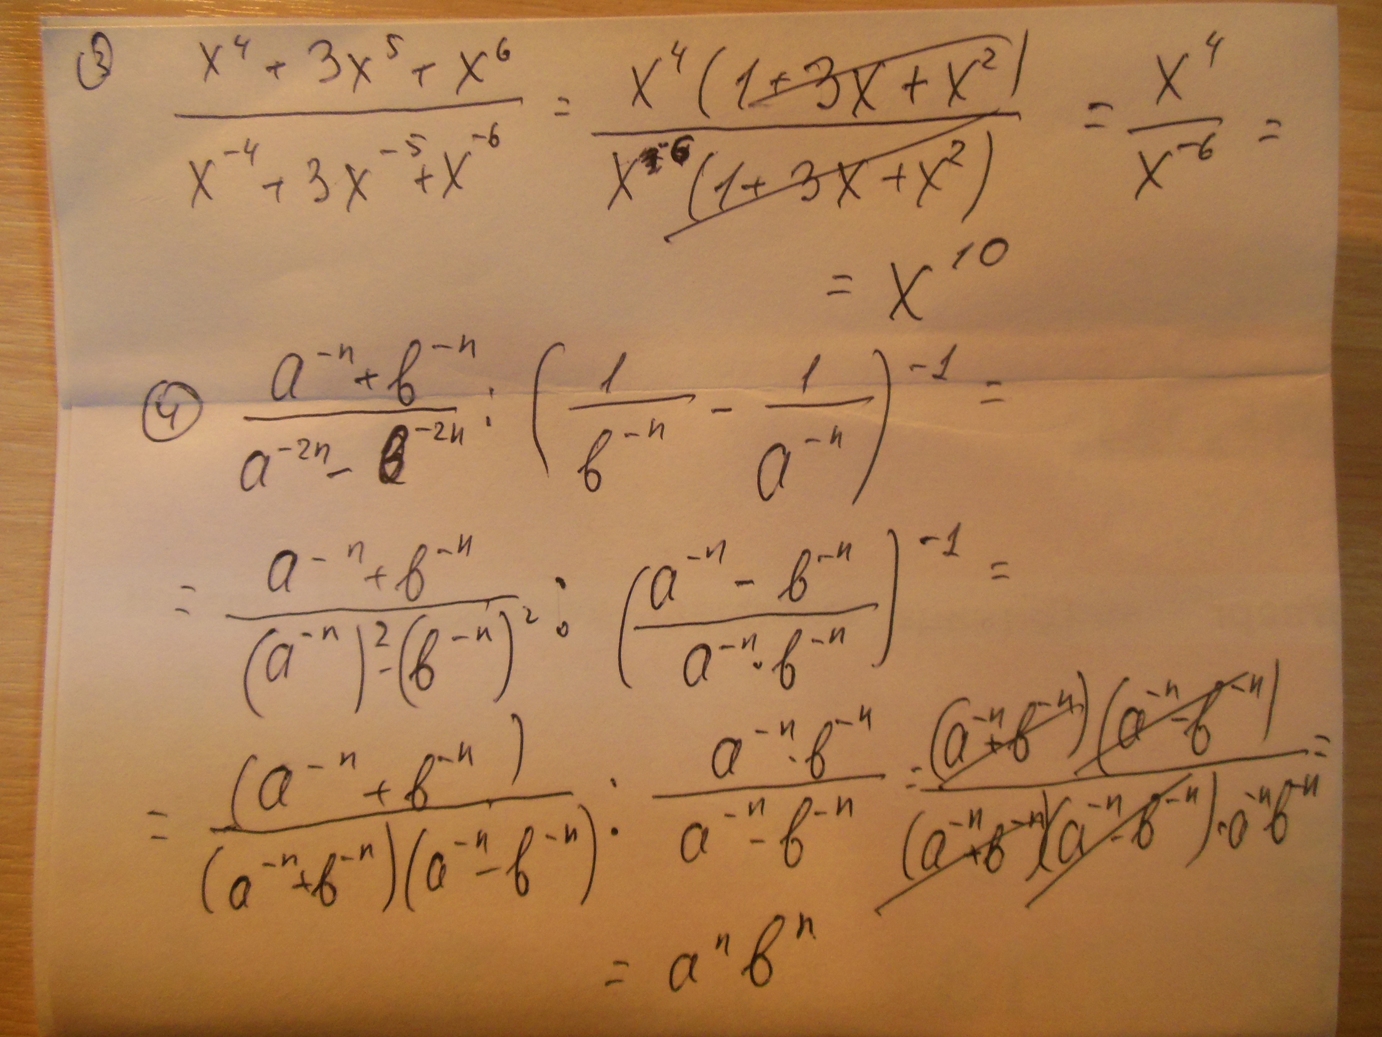 ③ (x⁴ + 3x⁵ + x⁶)/(x⁻⁴ + 3x⁻⁵ + x⁻⁶) = x⁴(1 + 3x + x²)/x⁻⁶(1 + 3x + x²) = x⁴/x⁻⁶ =
= x¹⁰
④ (a⁻ⁿ + b⁻ⁿ)/(a⁻²ⁿ - b⁻²ⁿ) : (1/b⁻ⁿ - 1/a⁻ⁿ)⁻¹ =
= (a⁻ⁿ + b⁻ⁿ)/((a⁻ⁿ)² - (b⁻ⁿ)²) : ((a⁻ⁿ - b⁻ⁿ)/(a⁻ⁿ · b⁻ⁿ))⁻¹ =
= (a⁻ⁿ + b⁻ⁿ)/((a⁻ⁿ + b⁻ⁿ)(a⁻ⁿ - b⁻ⁿ)) : (a⁻ⁿ · b⁻ⁿ)/(a⁻ⁿ - b⁻ⁿ) = (a⁻ⁿ + b⁻ⁿ)(a⁻ⁿ - b⁻ⁿ)/((a⁻ⁿ + b⁻ⁿ)(a⁻ⁿ - b⁻ⁿ) · a⁻ⁿ b⁻ⁿ) =
= aⁿ bⁿ